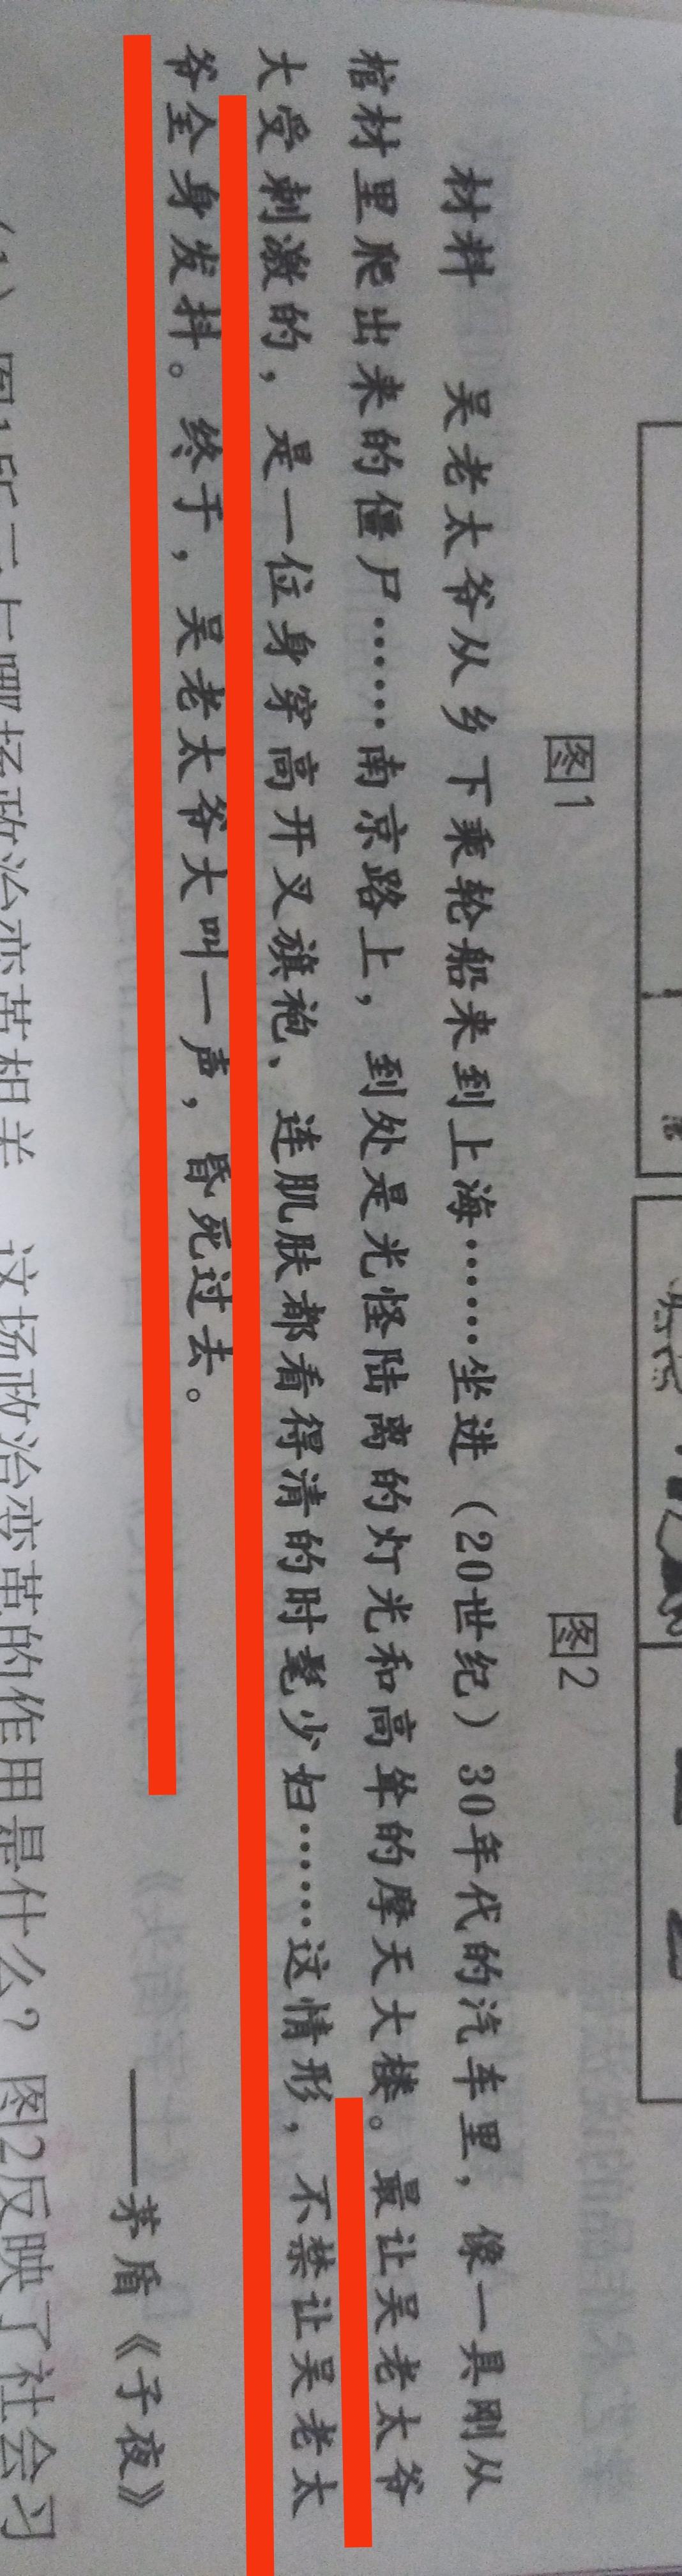 图1
图2
材料 吴老太爷从乡下乘轮船来到上海……坐进（20世纪）30年代的汽车里，像一具刚从
棺材里爬出来的僵尸……南京路上，到处是光怪陆离的灯光和高耸的摩天大楼。最让吴老太爷
大受刺激的，是一位身穿高开叉旗袍、连肌肤都看得清的时髦少妇……这情形，不禁让吴老太
爷全身发抖。终于，吴老太爷大叫一声，昏死过去。
——茅盾《子夜》
（1）图1所示与哪场政治变革相关 这场政治变革的作用是什么？图2反映了社会习